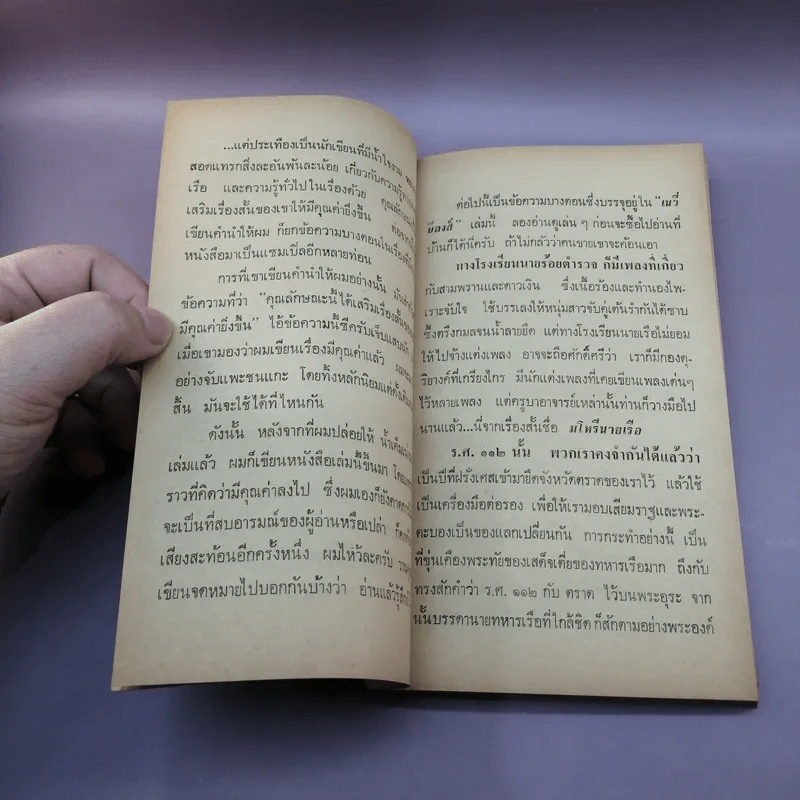 ...แต่ประเทืองเป็นนักเขียนที่มีน้ำใจงาม
สอดแทรกสิ่งละอันพันละน้อย เกี่ยวกับความรู้
เรือ และความรู้ทั่วไปในเรื่องด้วย คุณลักษณะ
เสริมเรื่องสั้นของเขาให้มีคุณค่ายิ่งขึ้น
เขียนคำนำให้ผม ก็ยกข้อความบางตอนในเรื่อง
หนังสือมาเป็นแซมเปิลอีกหลายท่อน
การที่เขาเขียนคำนำให้ผมอย่างนั้น
ข้อความที่ว่า “คุณลักษณะนี้ได้เสริมเรื่องสั้น
มีคุณค่ายิ่งขึ้น” ไอ้ข้อความนี้ซีครับเจ็บแสบ
เมื่อเขามองว่าผมเขียนเรื่องมีคุณค่าแล้ว
อย่างจับแพะชนแกะ โดยทิ้งหลักนิยมแต่ดั้งเดิม
สิ้น มันจะใช้ได้ที่ไหนกัน
ดังนั้น หลังจากที่ผมปล่อยให้ น้ำเค็ม
เล่มแล้ว ผมก็เขียนหนังสือเล่มนี้ขึ้นมา
ราวที่คิดว่ามีคุณค่าลงไป ซึ่งผมเองก็ยัง
จะเป็นที่สบอารมณ์ของผู้อ่านหรือเปล่า
เสียงสะท้อนอีกครั้งหนึ่ง ผมไหว้ละครับ
เขียนจดหมายไปบอกกันบ้างว่า อ่านแล้วรู้สึก
ต่อไปนี้เป็นข้อความบางตอนซึ่งบรรจุอยู่ใน “เนวี่
บ๊องส์” เล่มนี้ ลองอ่านดูเล่น ๆ ก่อนจะซื้อไปอ่านที่
บ้านก็ได้นี่ครับ ถ้าไม่กลัวว่าคนขายเขาจะค้อนเอา
ทางโรงเรียนนายร้อยตำรวจ ก็มีเพลงที่เกี่ยว
กับสามพรานและดาวเงิน ซึ่งเนื้อร้องและทำนองไพ-
เราะจับใจ ใช้บรรเลงให้หนุ่มสาวจับคู่เต้นรำกันได้ซาบ
ซึ้งตรึงกมลจนน้ำลายยืด แต่ทางโรงเรียนนายเรือไม่ยอม
ให้ไปจ้างแต่งเพลง อาจจะถือศักดิ์ศรีว่า เราก็มีกองดุ-
ริยางค์ที่เกรียงไกร มีนักแต่งเพลงที่เคยเขียนเพลงเด่นๆ
ไว้หลายเพลง แต่ครูบาอาจารย์เหล่านั้นท่านก็วางมือไป
นานแล้ว...นี่จากเรื่องสั้นชื่อ มโหรีนายเรือ
ร.ศ. ๑๑๒ นั้น พวกเราคงจำกันได้แล้วว่า
เป็นปีที่ฝรั่งเศสเข้ามายึดจังหวัดตราดของเราไว้ แล้วใช้
เป็นเครื่องมือต่อรอง เพื่อให้เรามอบเสียมราฐและพระ-
ตะบองเป็นของแลกเปลี่ยนกัน การกระทำอย่างนี้ เป็น
ที่ขุ่นเคืองพระทัยของเสด็จเตี่ยของทหารเรือมาก ถึงกับ
ทรงสักคำว่า ร.ศ. ๑๑๒ กับ ตราด ไว้บนพระอุระ จาก
นั้นบรรดานายทหารเรือที่ใกล้ชิด ก็สักตามอย่างพระองค์